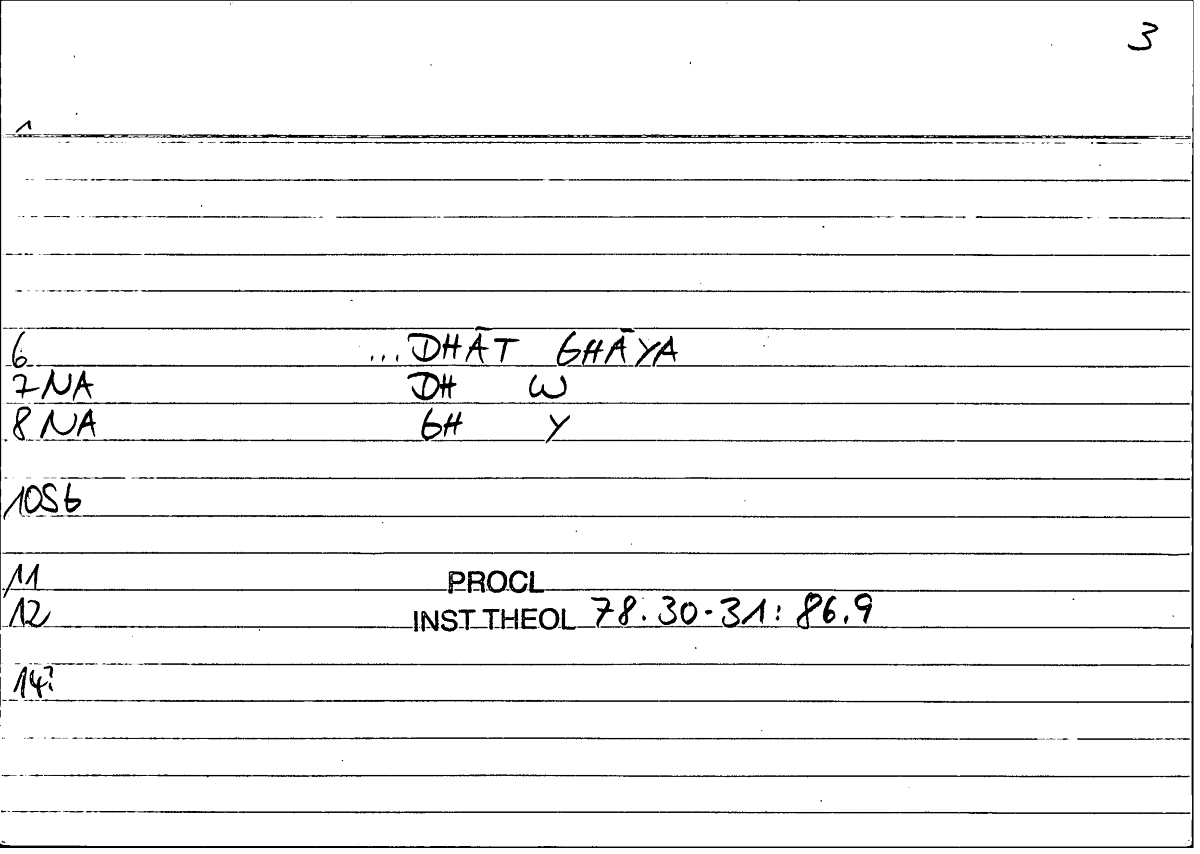 3
1
6 ...DHĀT GHĀYA
7 NA DH W
8 NA GH Y
10SG
11 PROCL
12 INST THEOL 78.30-31: 86.9
14?